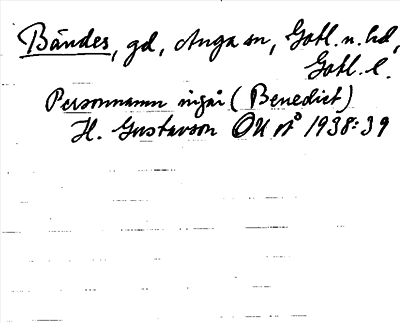 Bändes, gd, Anga sn, Gotl. n. hd,
Gotl. l.
Personnamn ingår (Benedict)
H. Gustavson OUÅ 1938:39